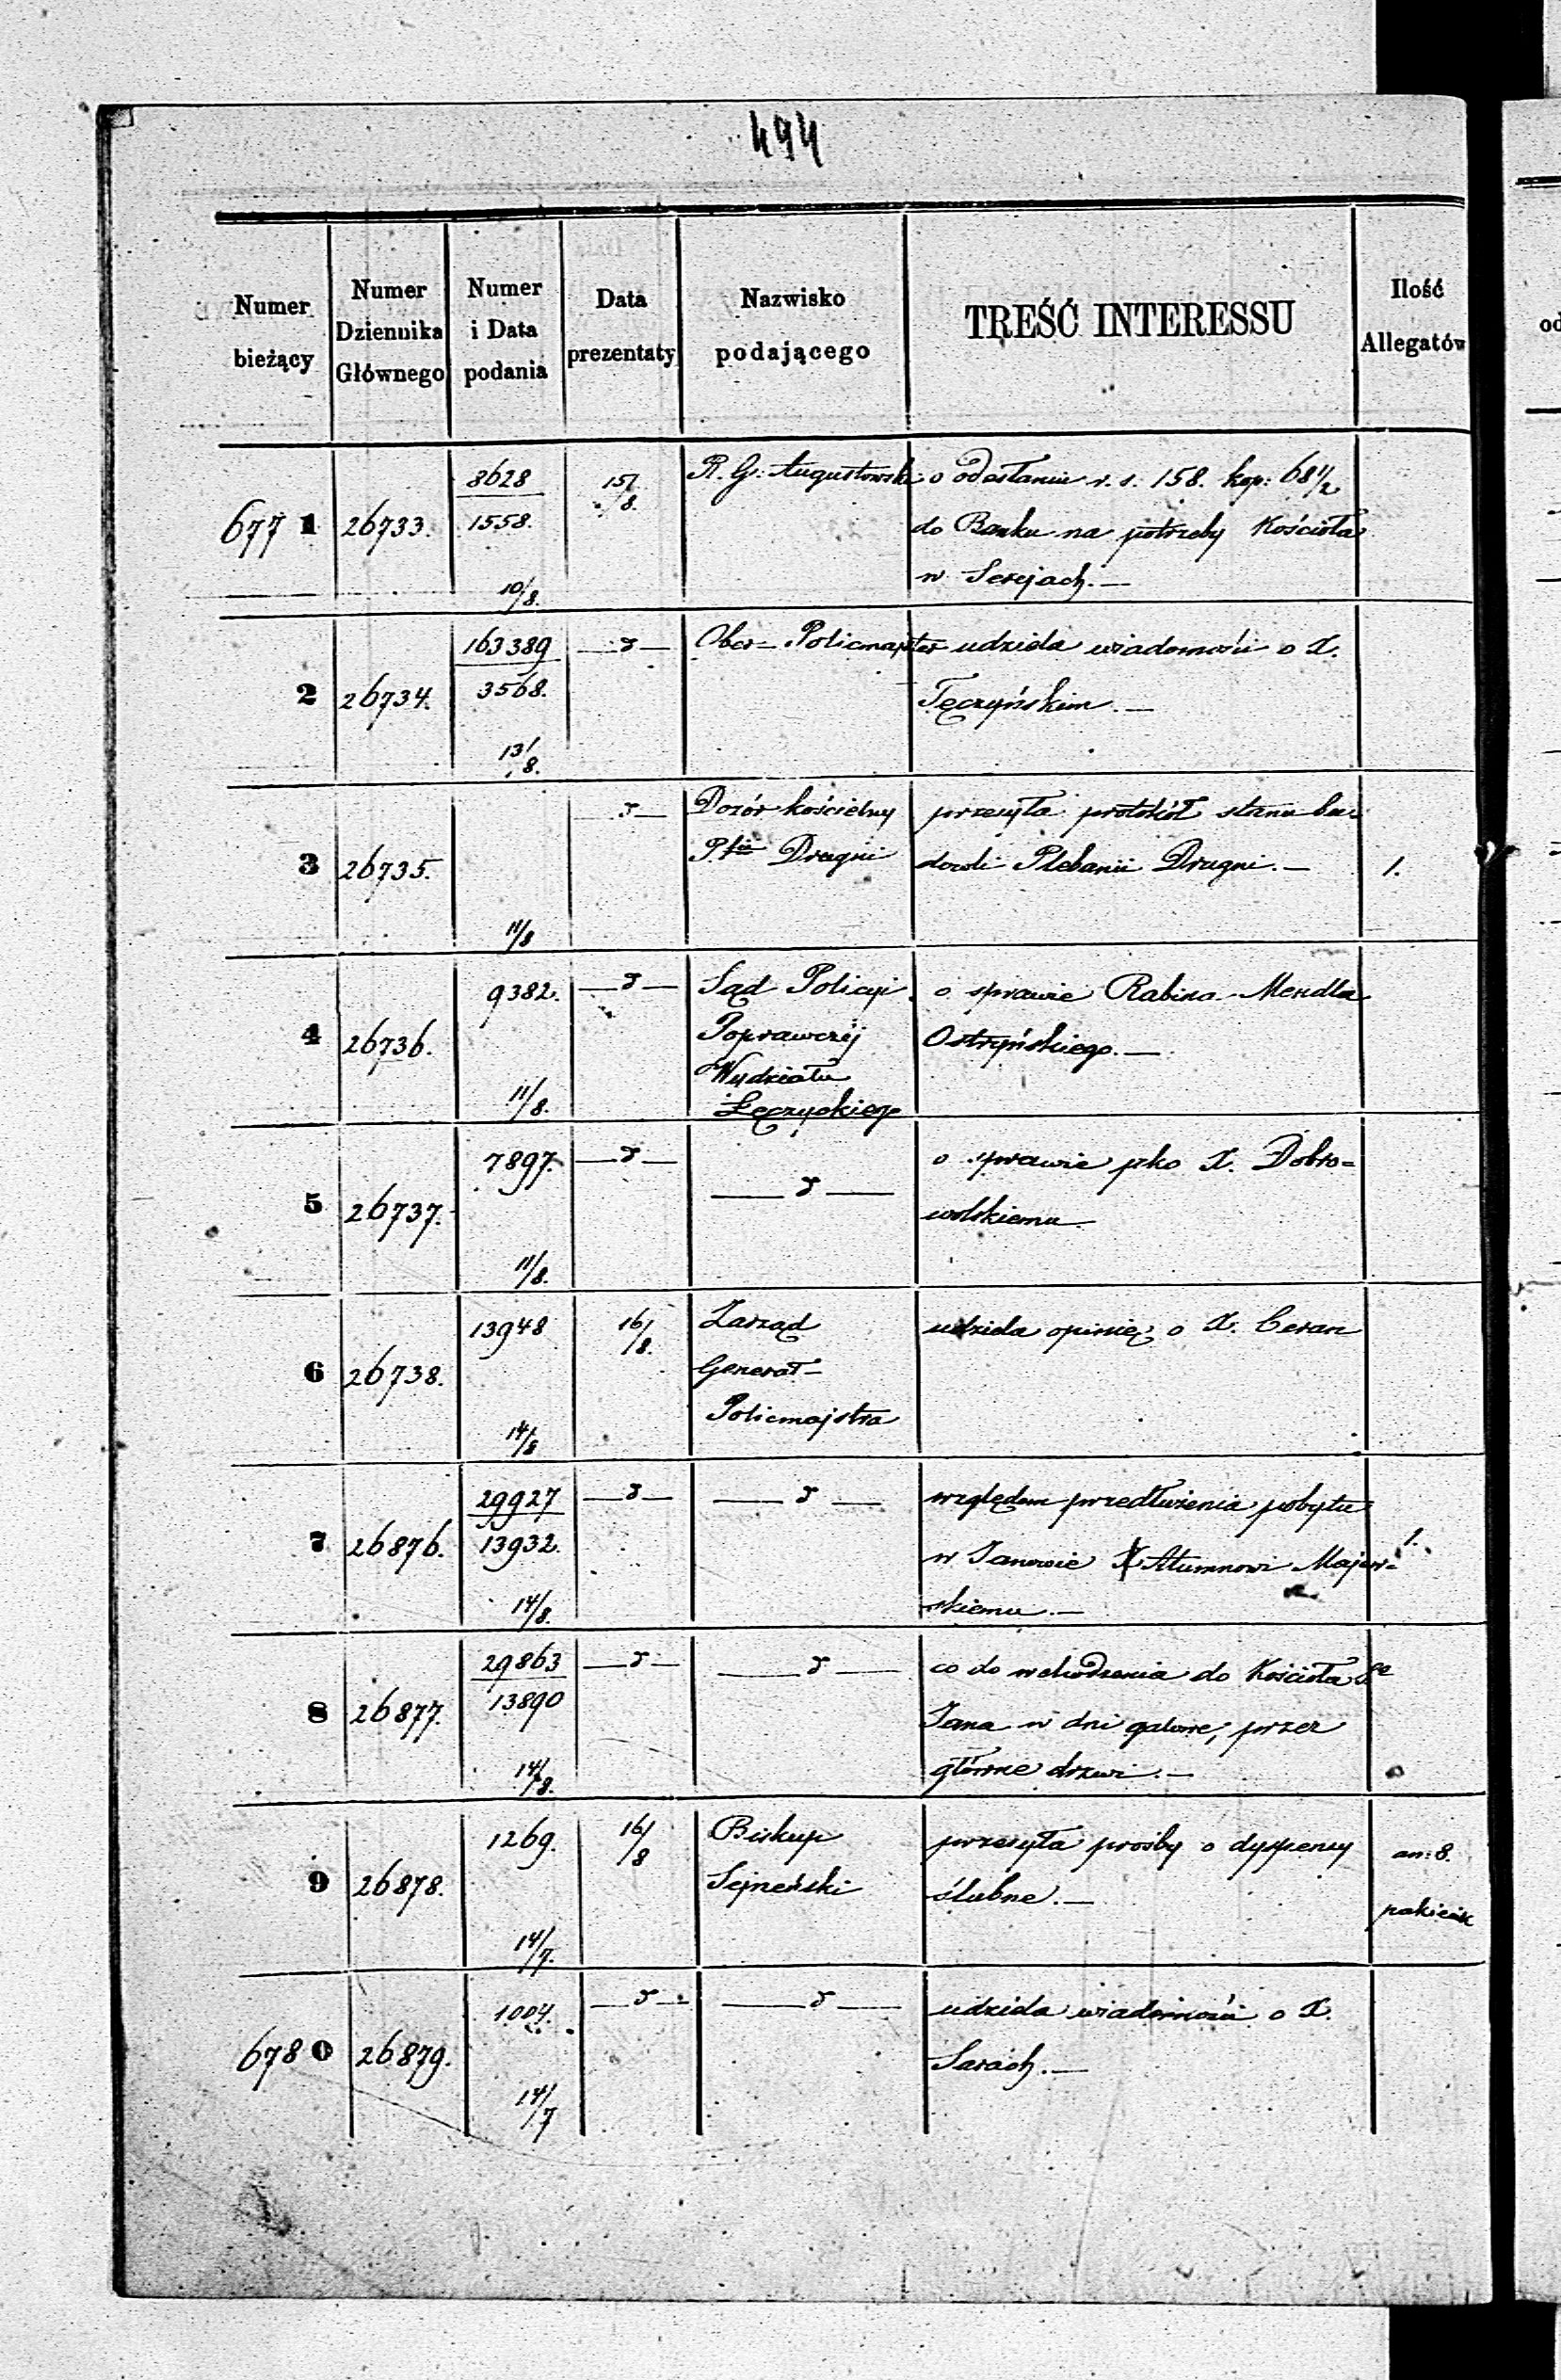 494
Numer bieżący | Numer Dziennika Głównego | Numer i Data podania | Data prezentaty | Nazwisko podającego | TREŚĆ INTERESSU | Ilość Allegatów
6771 | 26733. | 8628 / 1558. 10/8. | 15/8. | R. G. Augustowski | o odesłaniu r. s. 158. kop: 68 1/2
do Banku na potrzeby Kościoła
w Serejach.—
2 | 26734. | 163389 / 3568. 13/8. | —d— | Ober-Policmajster | udziela wiadomości o X.
Tęczyńskim.—
3 | 26735. | 11/8 | d— | Dozór kościelny | przesyła protokół stanu bu-
Pfii Drugni | dowli Plebanii Drugni.— | 1.
4 | 26736. | 9382. 11/8. | —d— | Sąd Policyi | o sprawie Rabina Mendla
Poprawczéj | Ostryńskiego.—
Wydziału
Łęczyckiego
5 | 26737. | 7897. 11/8. | —d— | —d— | o sprawie pko X. Dobro=
wolskiemu
6 | 26738. | 13948 14/8 | 16/8. | Zarząd | udziela opinię o X. Ceran
Generał-
Policmajstra
7 | 26876. | 29927 / 13932. 14/8. | —d— | —d— | względem przedłużenia pobytu
w Janowie X Alumnowi Majew- | 1.
skiemu.—
8 | 26877. | 29863 / 13890 14/8. | —d— | —d— | co do wchodzenia do Kościoła Sgo
Jana w dni galowe, przez
główne drzwi.—
9 | 26878. | 1269. 14/7. | 16/8 | Biskup | przesyła prośby o dyspensy | an: 8.
Sejneński | ślubne.— | pakiecik
6780 | 26879. | 1004. 14/7 | —d— | —d— | udziela wiadomości o X.
Sarach.—